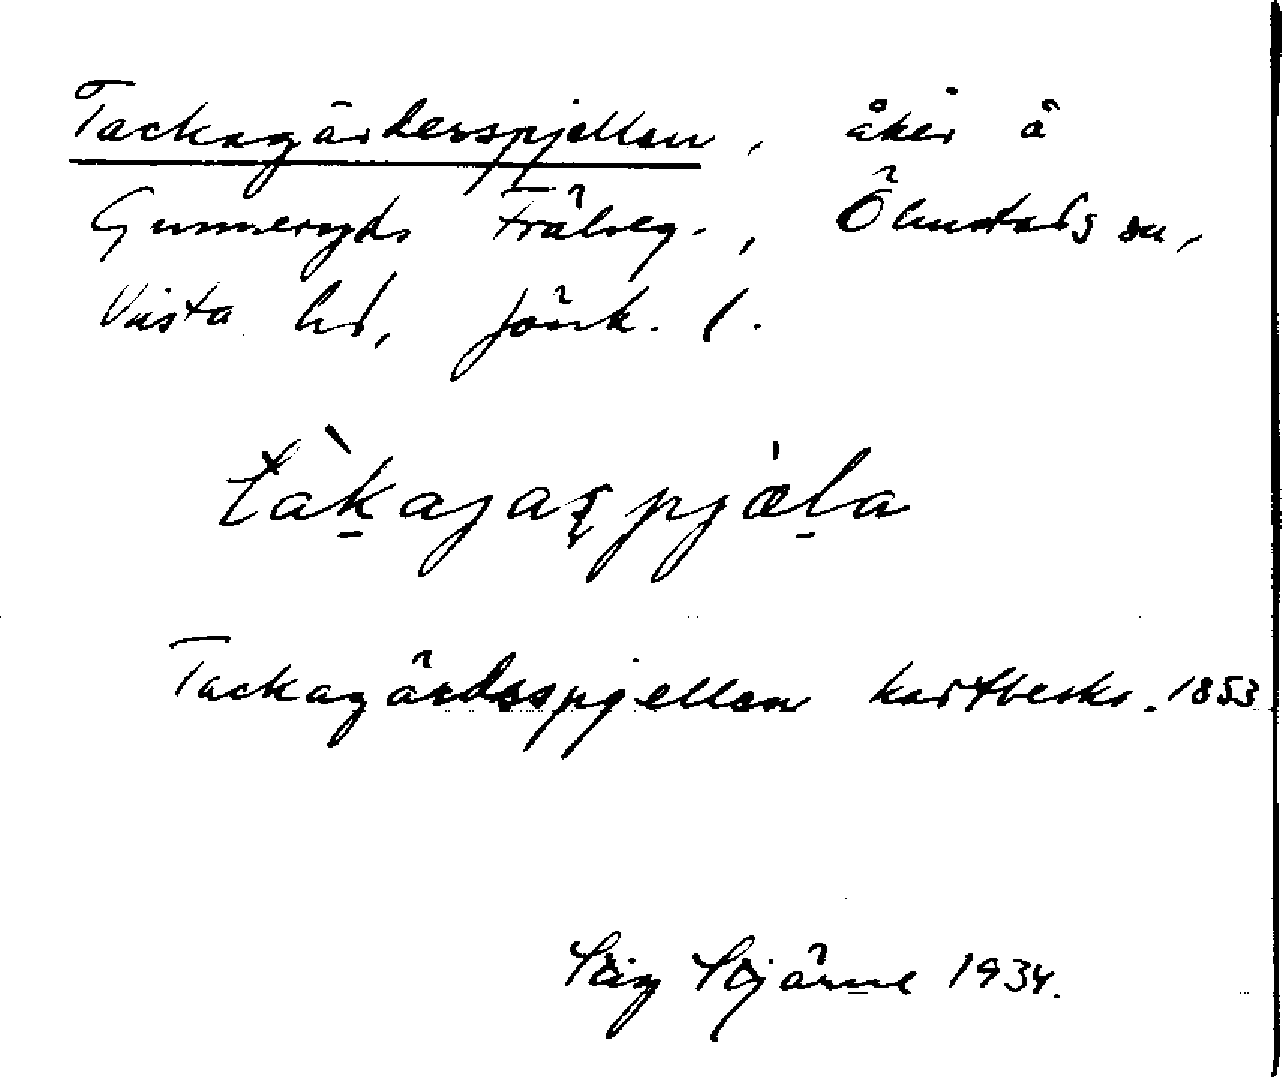 Tackagärdesspjellen, åker å
Gunneryds Frälseg., Ölmstads sn,
Vista hd, Jönk. l.
tàḵajaʂpjæḻa
Tackagärdsspjellen kartbeskr. 1853
Stig Stjärne 1934.